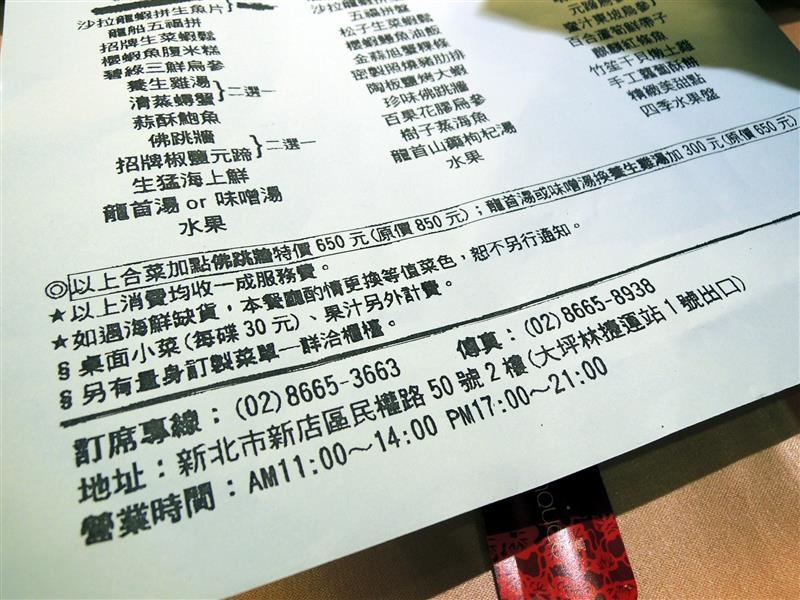 沙拉龍蝦拼生魚片
龍船五福拼
招牌生菜蝦鬆
櫻蝦魚腹米糕
碧綠三鮮烏參
養生雞湯
清蒸蟳蟹
二選一
蒜酥鮑魚
佛跳牆
招牌椒鹽元蹄
二選一
生猛海上鮮
龍首湯 or 味噌湯
水果
沙拉龍蝦
五福拼盤
松子生菜蝦鬆
櫻蝦鰻魚油飯
金蒜旭蟹粿條
密製照燒豬肋排
陶板鹽烤大蝦
珍味佛跳牆
百果花膠烏參
樹子蒸海魚
龍首山藥枸杞湯
水果
蜜汁東坡烏參
百合蘆筍鮮帶子
竹笙干貝燉土雞
精緻美甜點
四季水果盤
◎以上合菜加點佛跳牆特價 650 元(原價 850 元)；龍首湯或味噌湯換養生雞湯加 300 元(原價 650 元)
★以上消費均收一成服務費。
★如遇海鮮缺貨，本餐廳酌情更換等值菜色，恕不另行通知。
§桌面小菜(每碟 30 元)、果汁另外計費。
§另有量身訂製菜單—詳洽櫃檯。
訂席專線：(02)8665-3663 傳真：(02)8665-8938
地址：新北市新店區民權路 50 號 2 樓(大坪林捷運站 1 號出口)
營業時間：AM11:00～14:00 PM17:00～21:00